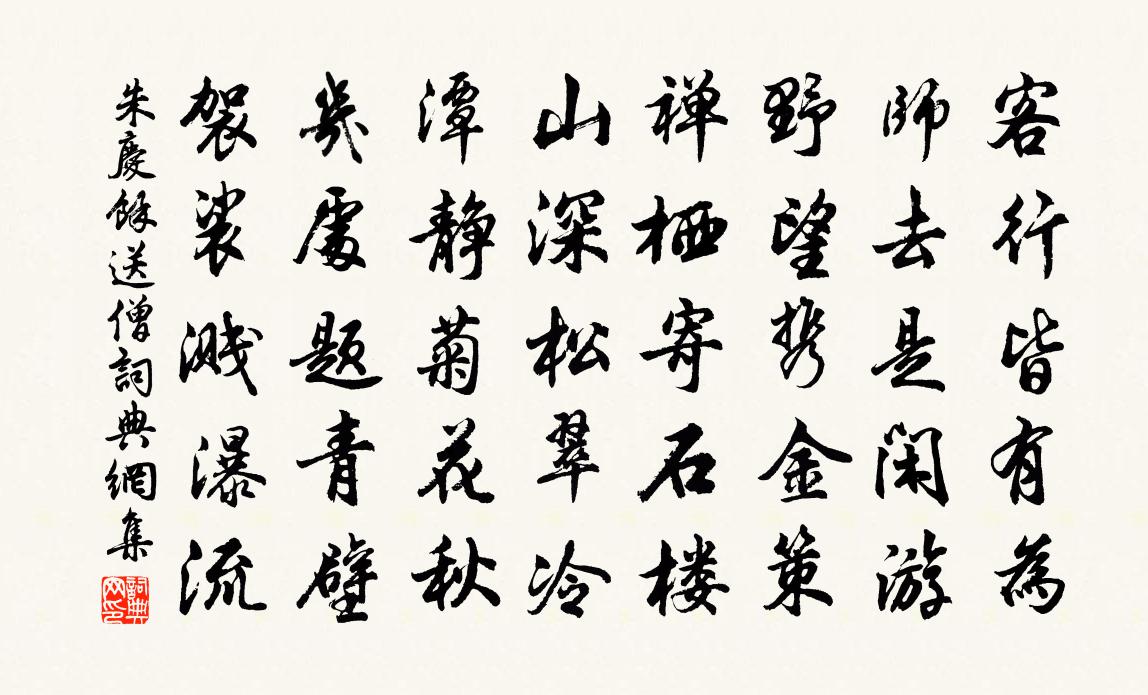 客行皆有為
師去是闲游
野望携金策
禅栖寄石楼
山深松翠冷
潭静菊花秋
幾處題青壁
袈裟溅瀑流
朱慶餘送僧詞典網集